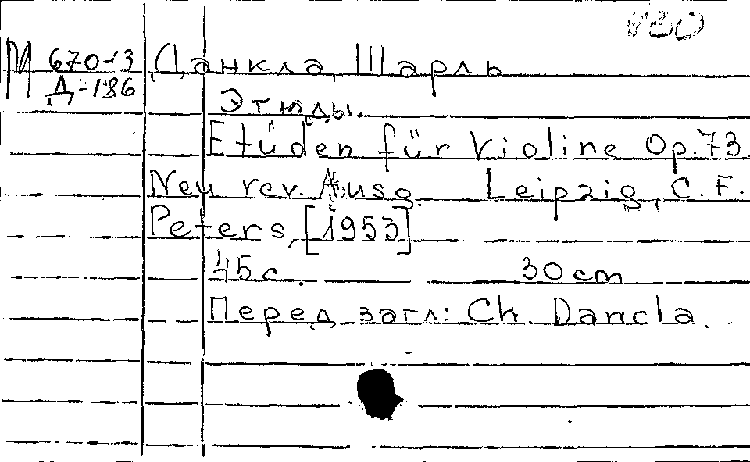 М 670-13 Данкла, Шарль
Д-186
Этюды.
Etüden für Violine Op.73.
Neu rev. Ausg. Leipzig, C. F.
Peters, [1953]
45 с. 30 cm
Перед загл: Ch. Dancla.